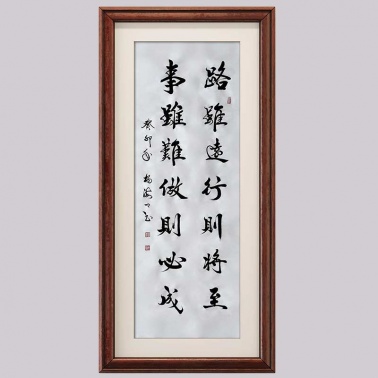 路雖遠行則將至
事雖難做則必成
癸卯年